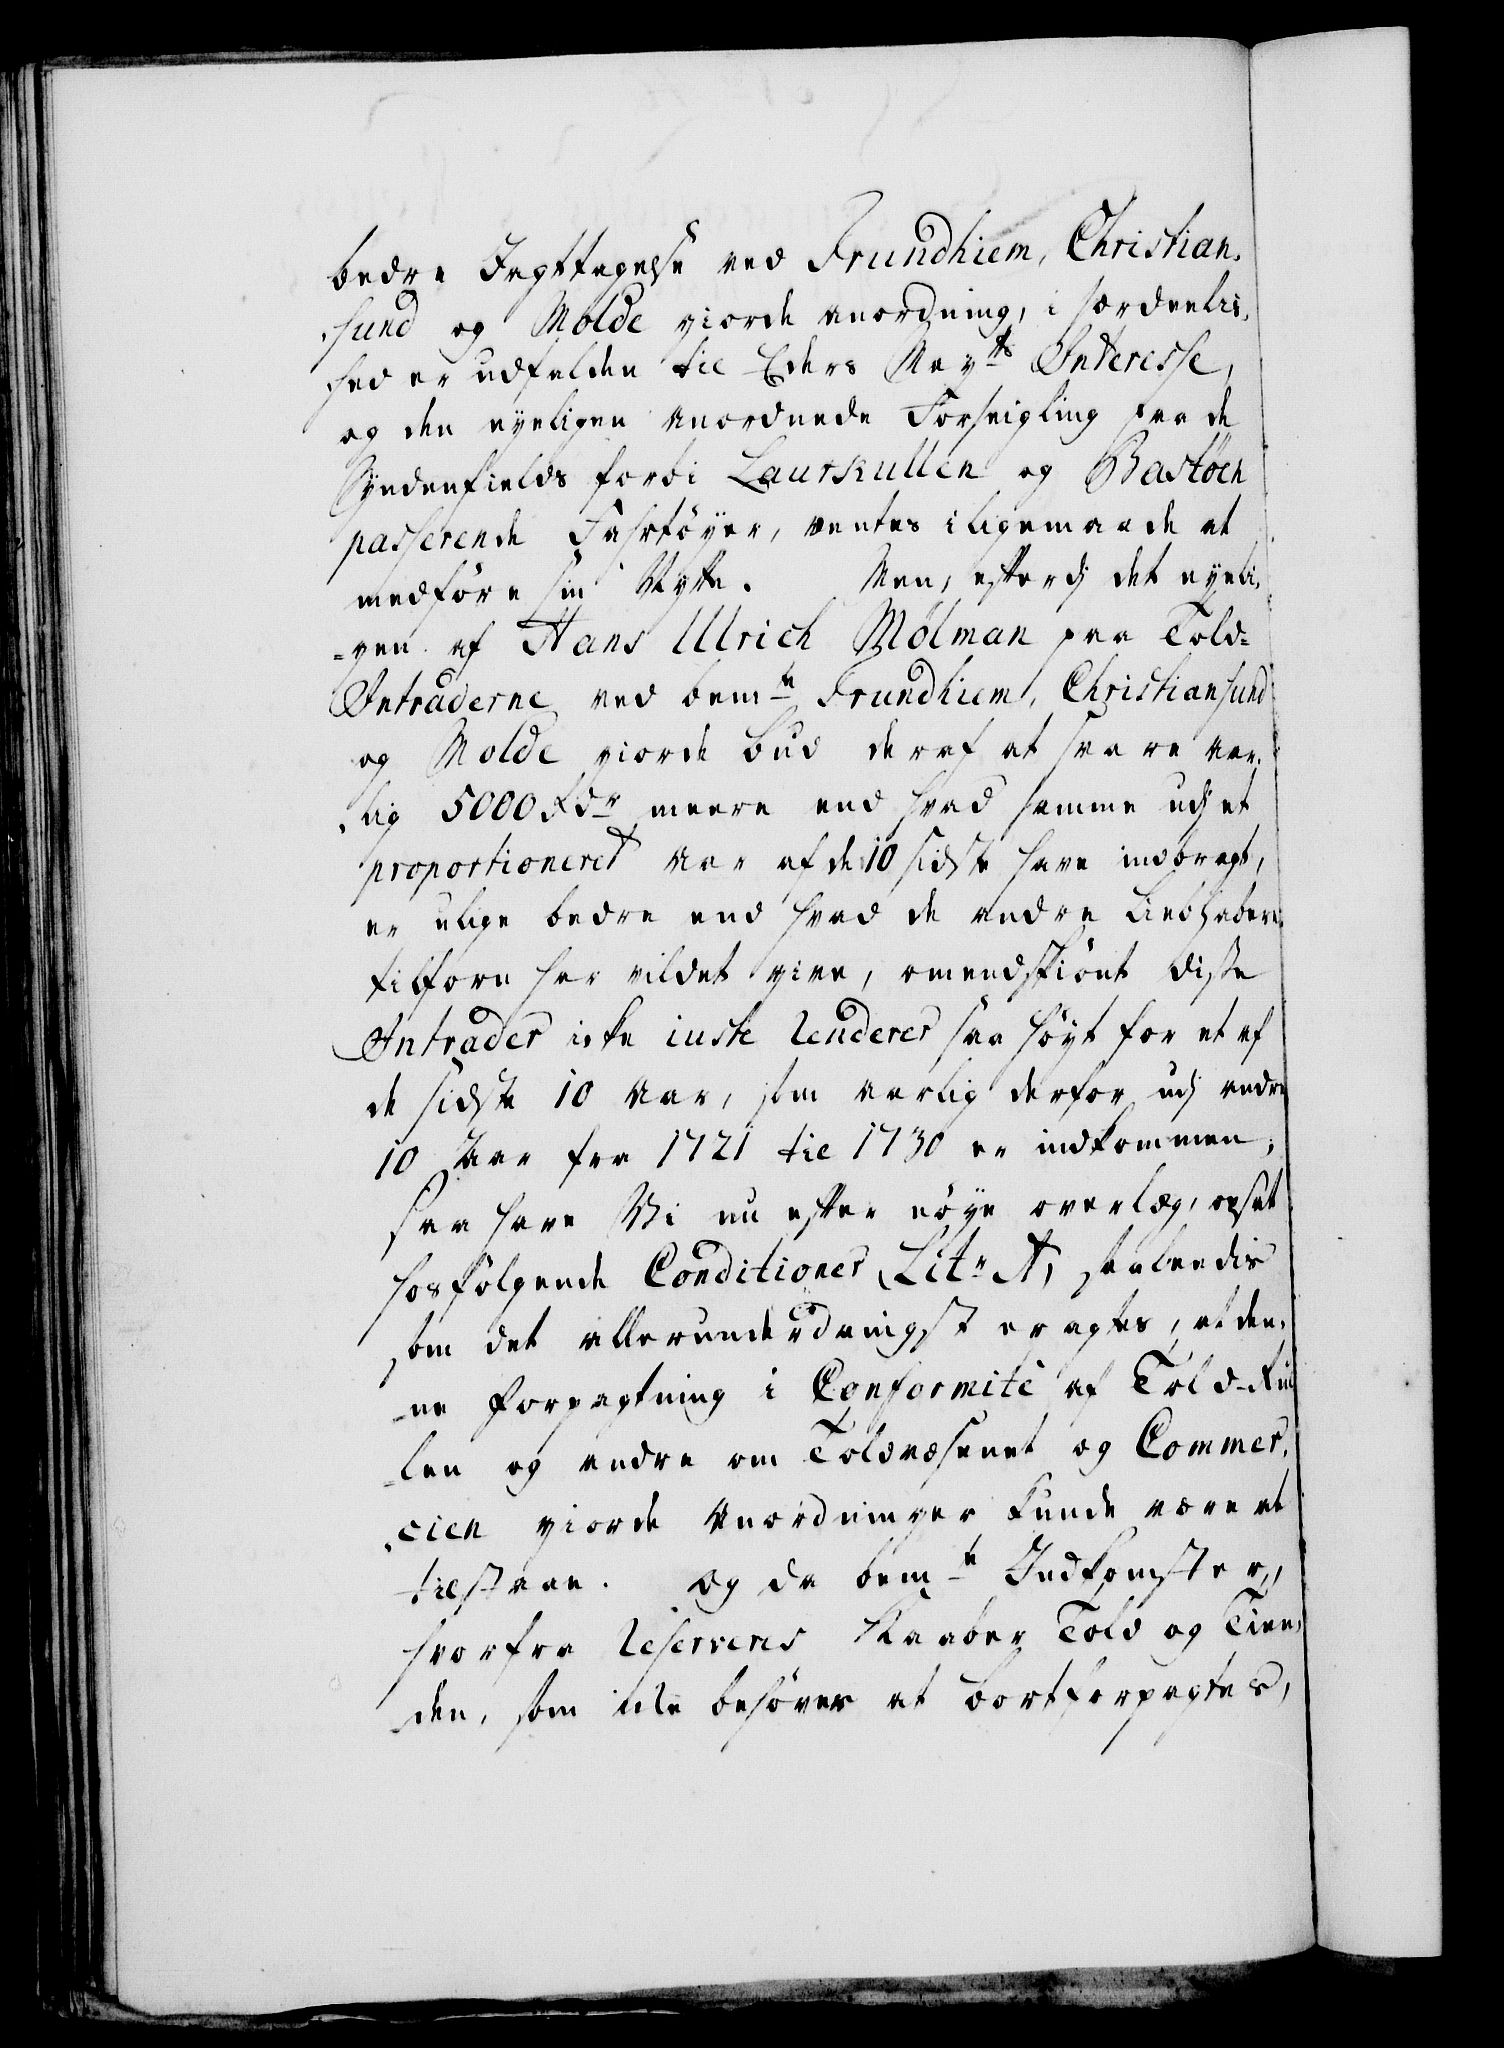 bedre Iagttagelse ved Trundhiem, Christian-
-sund og Molde giorde anordning, i særdeelis-
hed er udfalden til Eders Maytts Interesse,
og den nyeligen anordnede Forseigling paa de
Syndenfields forbi Laurkullen og Bastöen
passerende Fahrtöyer, ventes iligemaade at
medföre sin Nytte. Men, efterdj det nyeli-
-gen af Hans Ulrich Mølman paa Told-
Intraderne ved bemte Trundhiem, Christiansund
og Molde giorde bud deraf at svare aar-
-lig 5000 Rdr meere end hvad samme udj et
proportioneret Aar af de 10 sidste have indbragt,
er ulige bedre end hvad de andre Liebhabere
tilforn har vildet give, omendskiönt disse
Intrader icke iuste renderer saa höyt for et af
de sidste 10 Aar, som aarlig derfor udj andre
10 Aar fra 1721 til 1730 er indkommen;
Saa have Vi nu efter nöye overlæg, opsat
hosfölgende Conditioner Litr A, saaleedis
som det allerunderdanigst eragtes, at den-
-ne Forpagtning i Conformité af Told-Rul-
-len og andre om Toldvæsenet og Commer-
-cien giorde Anordninger kunde være at
tilstaae. Og da bemte Indkomster,
hvorfra reserveres Kaaber Told og Tien-
-den, som icke behöver at bortforpagtes,